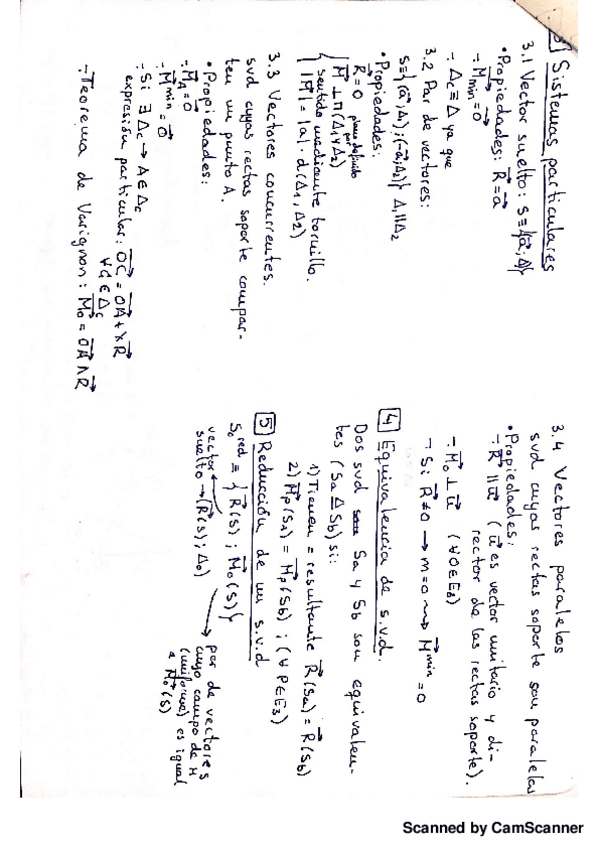 3] Sistemas particulares
3.1 Vector suelto: S ≡ {(a⃗; Δ)}
• Propiedades: R⃗ = a⃗
-: M⃗min = 0⃗
-: Δc ≡ Δ ya que
3.2 Par de vectores:
S = {(a⃗; Δ1); (-a⃗; Δ2)} Δ1 || Δ2
• Propiedades:
R⃗ = 0 plano definido por
M⃗ ⊥ Π (Δ1 y Δ2)
sentido mediante tornillo.
|M⃗| = |a| · d(Δ1, Δ2)
3.3 Vectores concurrentes.
svd cuyas rectas soporte compar-
ten un punto A.
• Propiedades:
-: M⃗A = 0⃗
-: M⃗min = 0⃗
-: Si ∃ Δc → A ∈ Δc
expresión particular: OC⃗ = OA⃗ + λR⃗
∀C ∈ Δc
-: Teorema de Varignon: M⃗o = OA⃗ ∧ R⃗
3.4 Vectores paralelos
svd cuyas rectas soporte son paralelas
• Propiedades:
-: R⃗ || u⃗ (u⃗ es vector unitario y di-
rector de las rectas soporte).
-: M⃗o ⊥ u⃗ (∀O ∈ E3)
-: S: R⃗ ≠ 0 → m = 0 ⇝ M⃗min = 0
4 Equivalencia de s.v.d.
Dos svd Sa y Sb son equivalen-
tes (Sa ≙ Sb) si:
1) Tienen = resultante R⃗(Sa) = R⃗(Sb)
2) M⃗p(Sa) = M⃗p(Sb) ; (∀P ∈ E3)
5 Reducción de un s.v.d
So red ≡ { R⃗(S) ; M⃗o(S) }
vector
suelto → (R⃗(S); Δo)
par de vectores
cuyo campo de M
(uniforme) es igual
a M⃗o(S)
Scanned by CamScanner